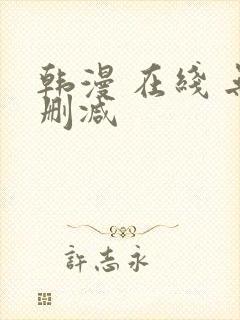 韩漫 在綫
删减
許志永